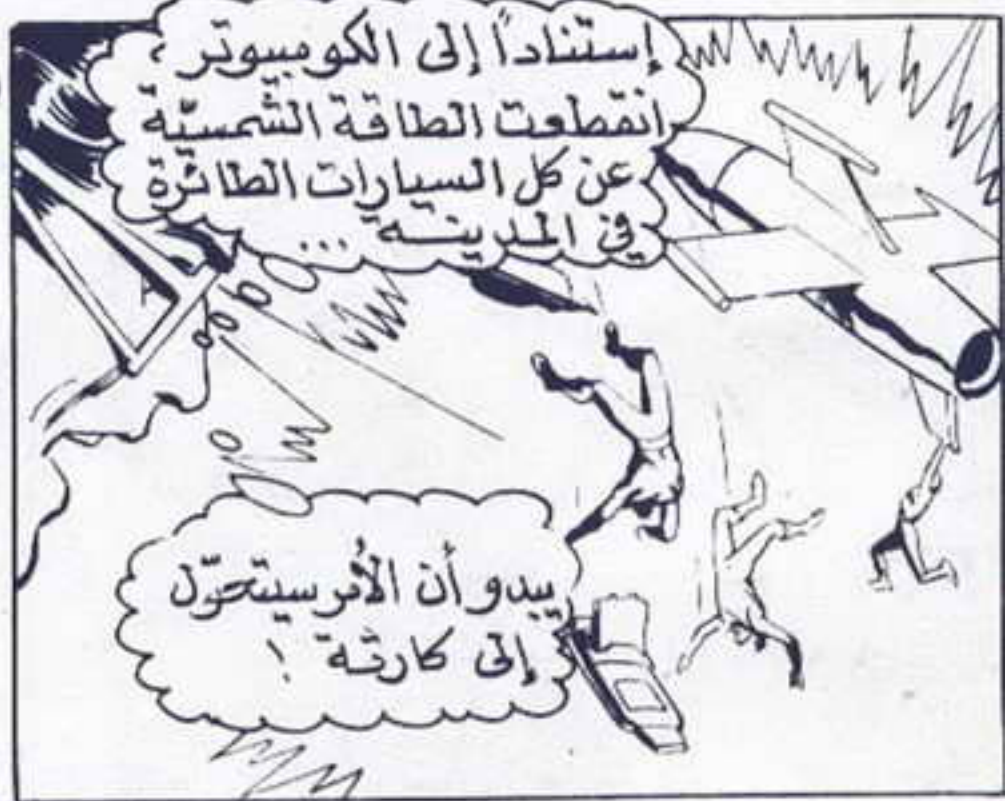 إستناداً إلى الكومبيوتر،
انقطعت الطاقة الشمسيّة
عن كل السيارات الطائرة
في المدينـة ...
يبدو أن الأمر سيتحوّل
إلى كارثة !